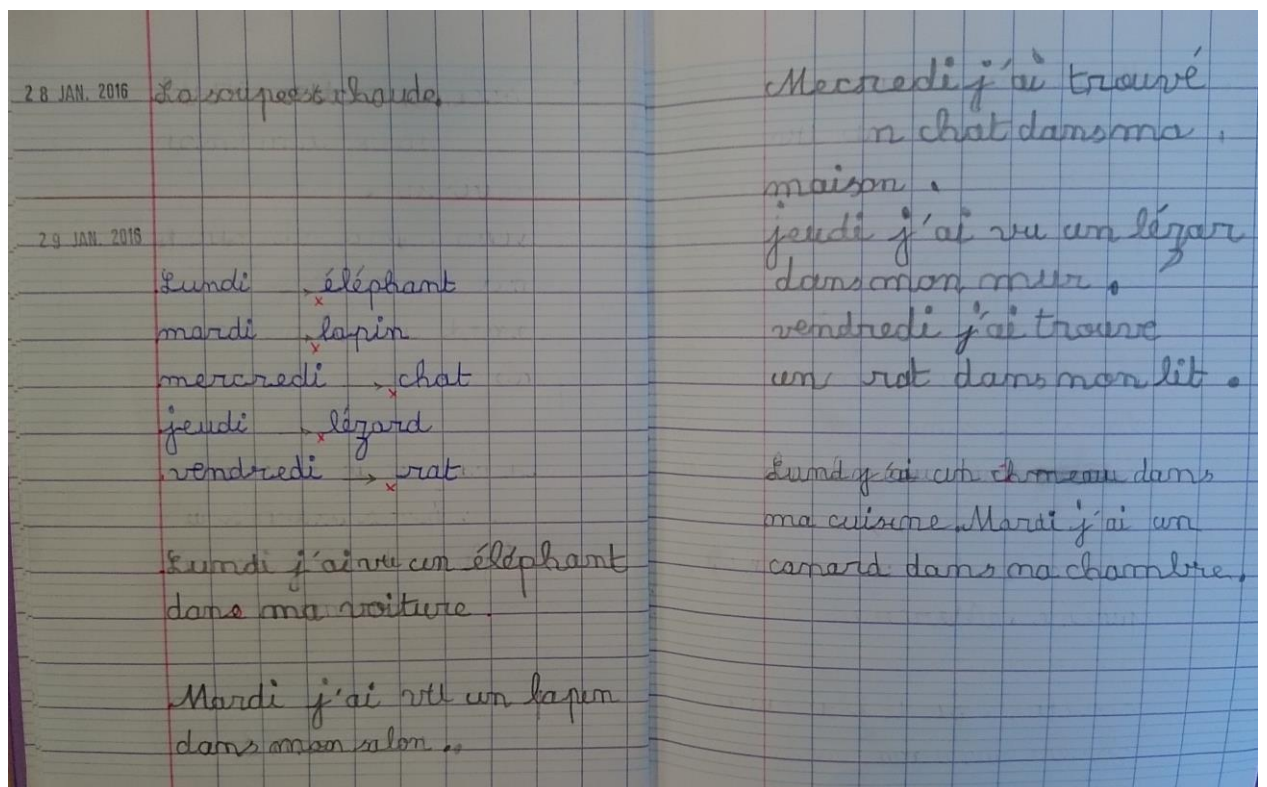 28 JAN. 2016 La soupe est chaude.
29 JAN. 2016
Lundi → éléphant
mardi → lapin
mercredi → chat
jeudi → lézard
vendredi → rat
Lundi j'ai vu un éléphant
dans ma voiture.
Mardi j'ai vu un lapin
dans mon salon..
Mecredi j'ai trouvé
n chat dans ma.
maison.
jeudi j'ai vu un lézar
dans mon mur.
vendredi j'ai trouve
un rat dans mon lit.
Lund j'ai un dans
ma cuisine. Mardi j'ai un
canard dans ma chambre.